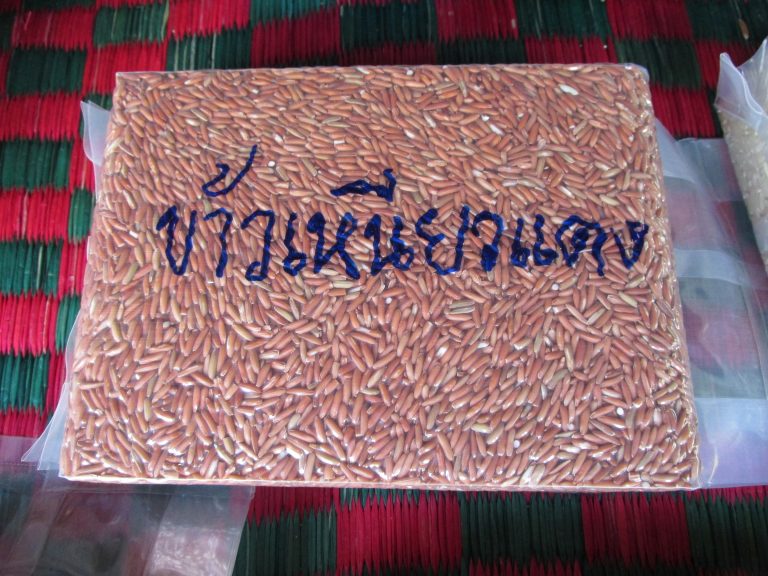 ข้าวเหนียวแดง